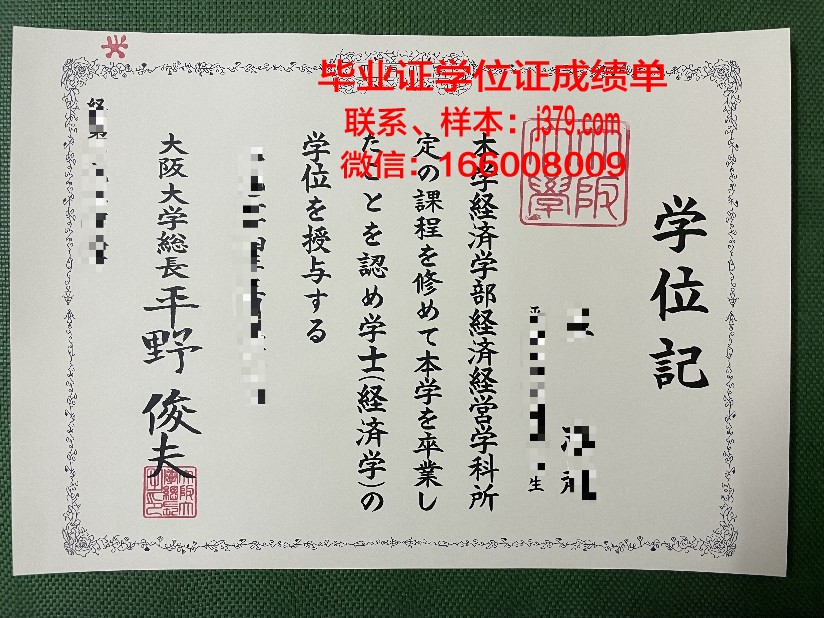 毕业证学位证成绩单
联系、样本：j379.com
微信：166008009
学位記
生
本学経済学部経済経営学科所
定の課程を修めて本学を卒業し
たことを認め学士(経済学)の
学位を授与する
大阪大学総長 平野俊夫
大阪
大學